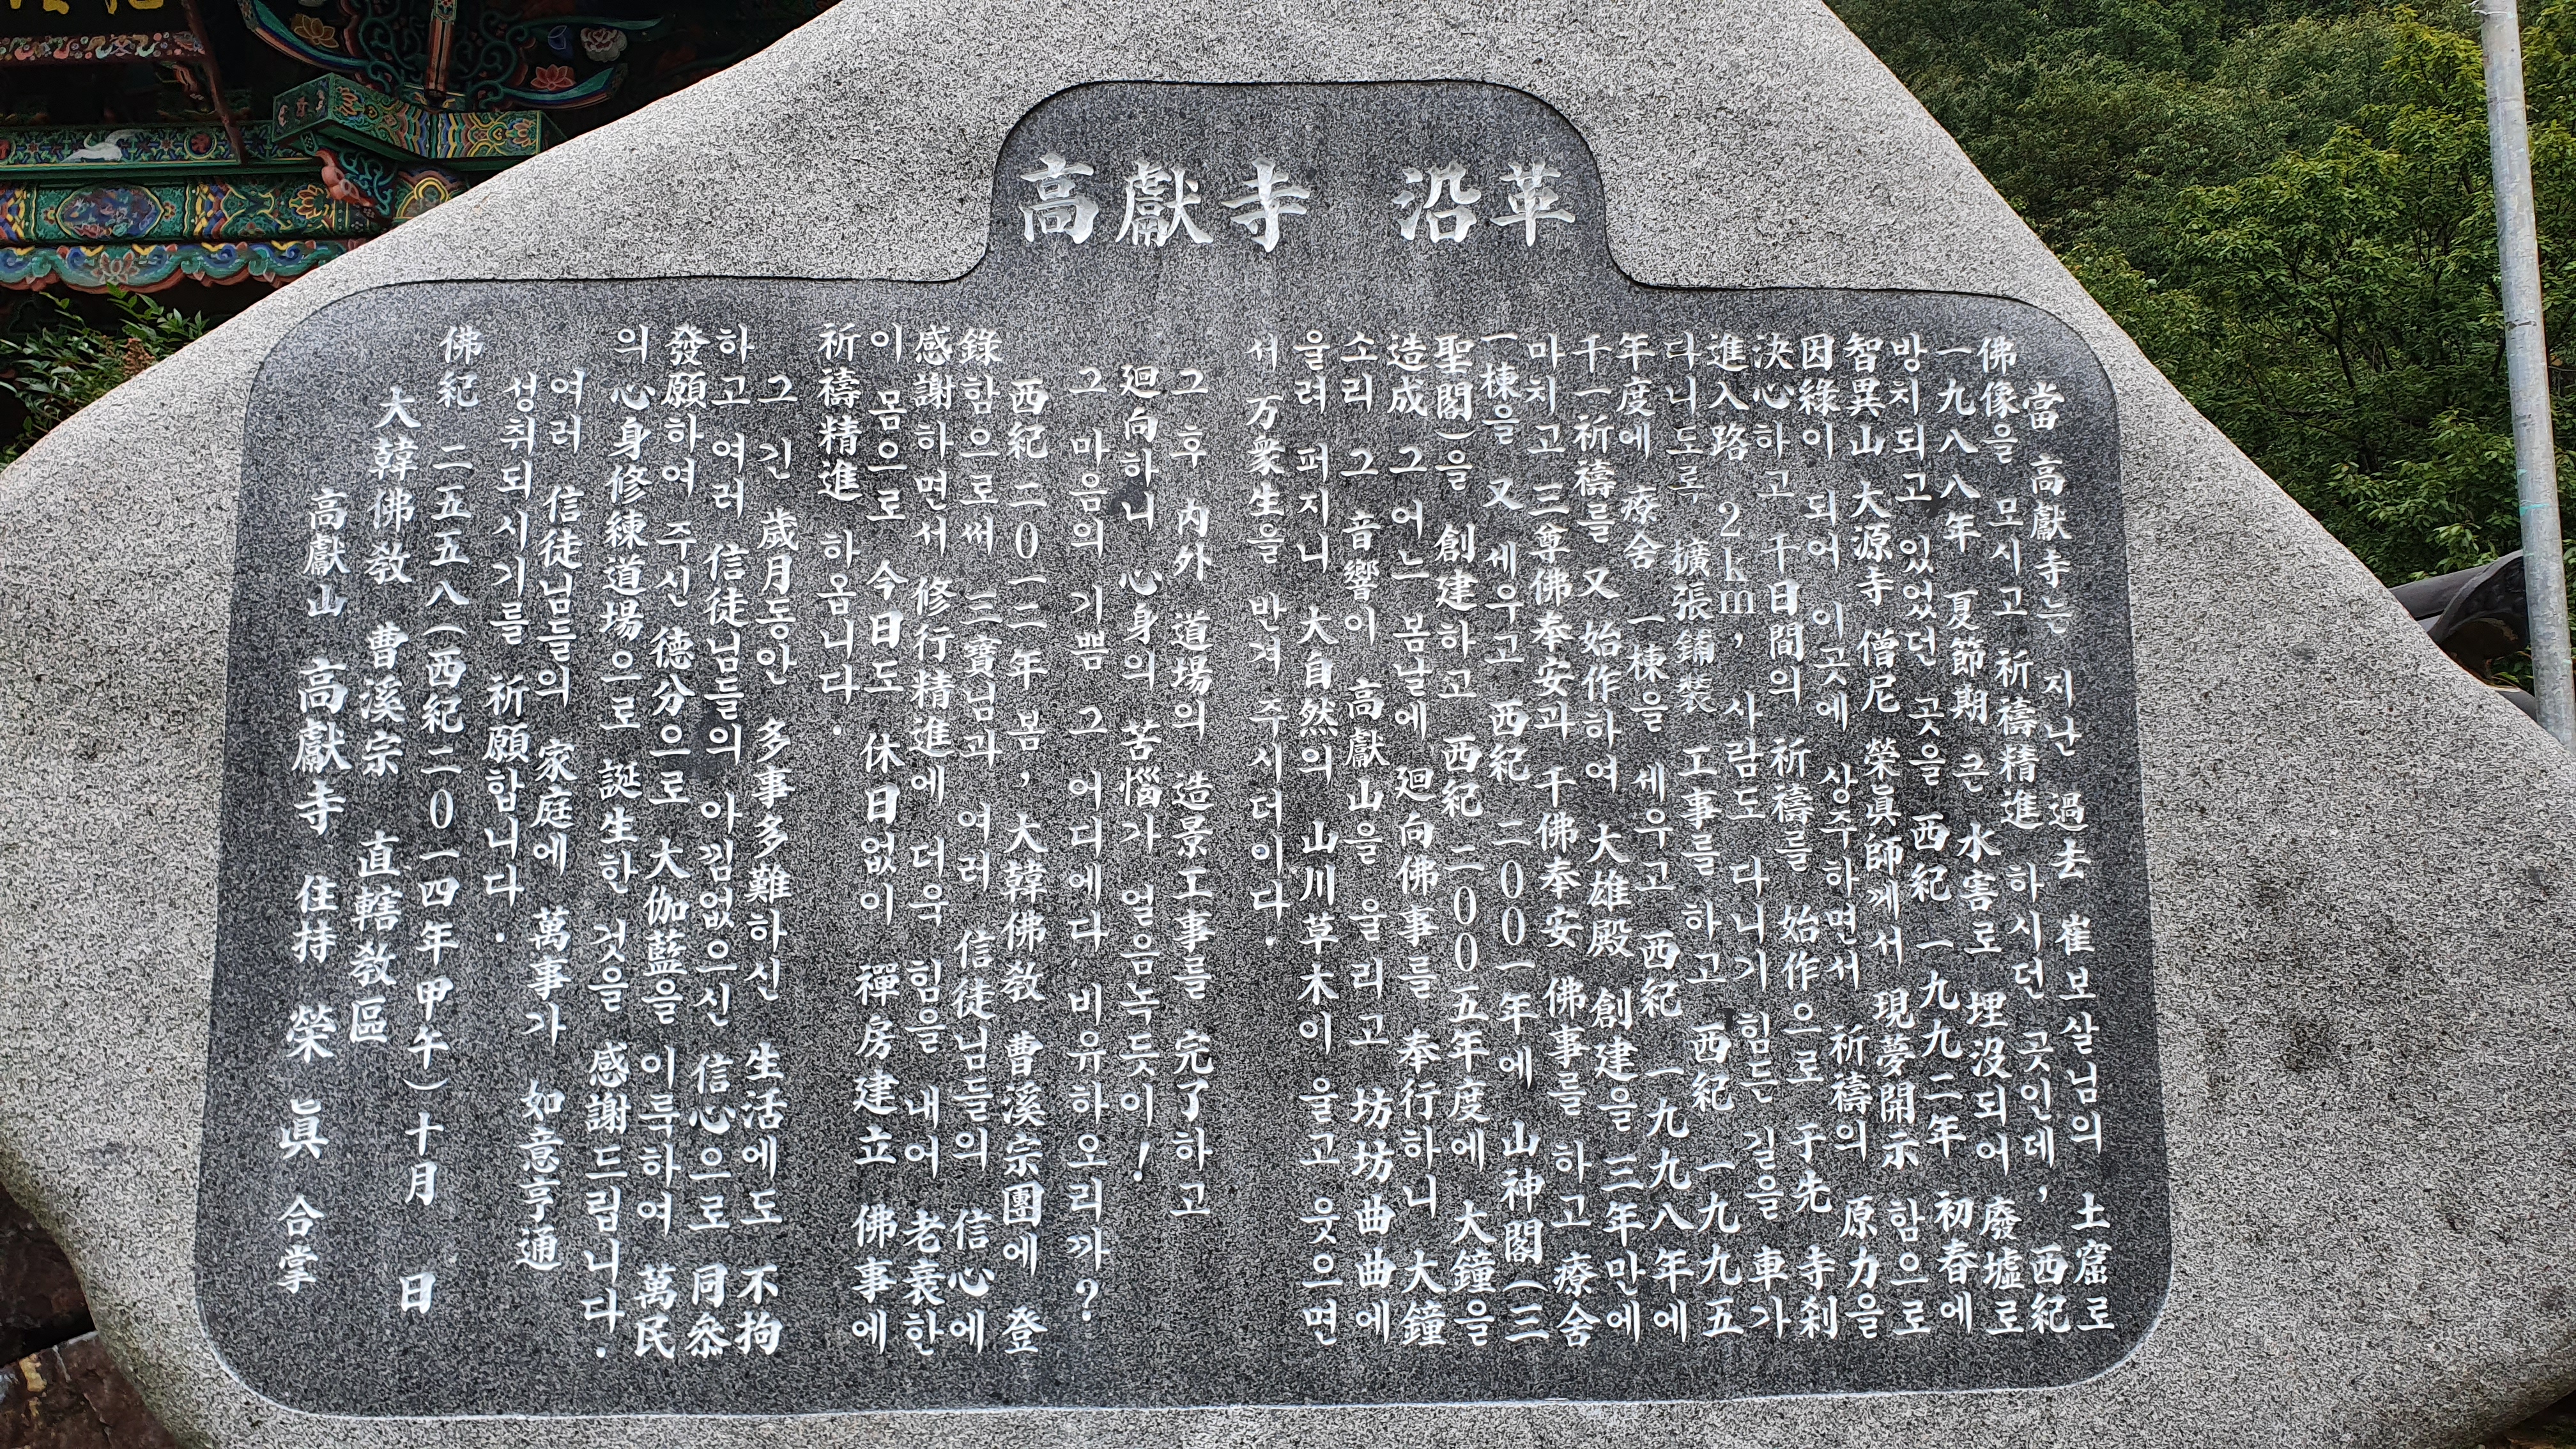 高獻寺 沿革
當 高獻寺는 지난 過去 崔보살님의 土窟로
佛像을 모시고 祈禱精進 하시던 곳인데, 西紀
一九八八年 夏節期 큰 水害로 埋沒되어 廢墟로
방치되고 있었던 곳을 西紀 一九九二年 初春에
智異山 大源寺 僧尼 榮眞師께서 現夢開示 함으로
因緣이 되어 이곳에 상주하면서 祈禱의 原力을
決心하고 千日間의 祈禱를 始作으로 于先 寺刹
進入路 2km, 사람도 다니기 힘든 길을 車가
다니도록 擴張鋪裝 工事를 하고 西紀 一九九五
年度에 療舍 一棟을 세우고 西紀 一九九八年에
千一祈禱를 又 始作하여 大雄殿 創建을 三年만에
마치고 三尊佛奉安과 千佛奉安 佛事를 하고 療舍
一棟을 又 세우고 西紀 二00一年에 山神閣(三
聖閣)을 創建하고 西紀 二00五年度에 大鐘을
造成 그어느 봄날에 廻向佛事를 奉行하니 大鐘
소리 그 音響이 高獻山을 울리고 坊坊曲曲에
울려 퍼지니 大自然의 山川草木이 울고 웃으면
서 万衆生을 반겨 주시더이다.
그후 內外 道場의 造景工事를 完了하고
廻向하니 心身의 苦惱가 얼음녹듯이!
그 마음의 기쁨 그 어디에다 비유하오리까?
西紀 二0一二年 봄, 大韓佛敎 曹溪宗團에 登
錄함으로써 三寶님과 여러 信徒님들의 信心에
感謝하면서 修行精進에 더욱 힘을 내어 老衰한
이 몸으로 今日도 休日없이 禪房建立 佛事에
祈禱精進 하옵니다.
그 긴 歲月동안 多事多難하신 生活에도 不拘
하고 여러 信徒님들의 아낌없으신 信心으로 同叅
發願하여 주신 德分으로 大伽藍을 이룩하여 萬民
의 心身修練道場으로 誕生한 것을 感謝드립니다.
여러 信徒님들의 家庭에 萬事가 如意亨通
성취되시기를 祈願합니다.
佛紀 二五五八(西紀二0一四年甲午)十月 日
大韓佛敎 曹溪宗 直轄敎區
高獻山 高獻寺 住持 榮 眞 合掌